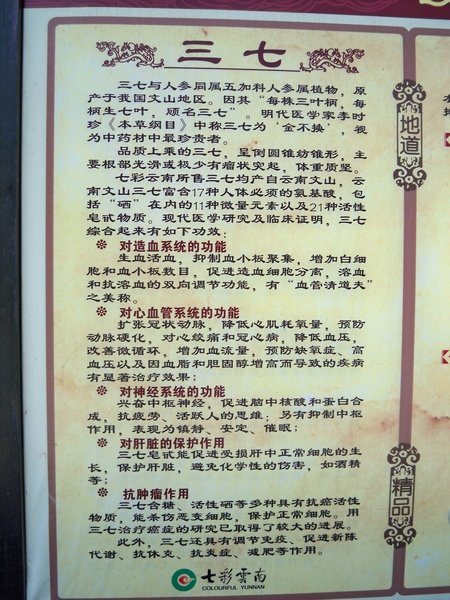 三七
三七与人参同属五加科人参属植物，原
产于我国文山地区。因其“每株三叶柄，每
柄生七叶，顾名三七”。明代医学家李时
珍《本草纲目》中称三七为‘金不换’，视
为中药材中最珍贵者。
品质上乘的三七，呈倒圆锥纺锥形，主
要根部光滑或极少有瘤状突起，体重质坚。
七彩云南所售三七均产自云南文山，云
南文山三七富含17种人体必须的氨基酸，包
括“硒”在内的11种微量元素以及21种活性
皂甙物质。现代医学研究及临床证明，三七
综合起来有如下功效：
※ 对造血系统的功能
生血活血，抑制血小板聚集，增加白细
胞和血小板数目，促进造血细胞分离，溶血
和抗溶血的双向调节功能，有“血管清道夫”
之美称。
※ 对心血管系统的功能
扩张冠状动脉，降低心肌耗氧量，预防
动脉硬化，对心绞痛和冠心病，降低血压，
改善微循环，增加血流量，预防缺氧症、高
血压以及因血脂和胆固醇增高而导致的疾病
有显著治疗效果；
※ 对神经系统的功能
兴奋中枢神经，促进脑中核酸和蛋白合
成，抗疲劳、活跃人的思维；另有抑制中枢
作用，表现为镇静、安定、催眠；
※ 对肝脏的保护作用
三七皂甙能促进受损肝中正常细胞的生
长，保护肝脏，避免化学性的伤害，如酒精
等；
※ 抗肿瘤作用
三七含糖、活性硒等多种具有抗癌活性
物质，能杀伤恶变细胞，保护正常细胞。用
三七治疗癌症的研究已取得了较大的进展。
此外，三七还具有调节免疫、促进新陈
代谢、抗休克、抗炎症、减肥等作用。
七彩雲南
COLOURFUL YUNNAN
地道
精品